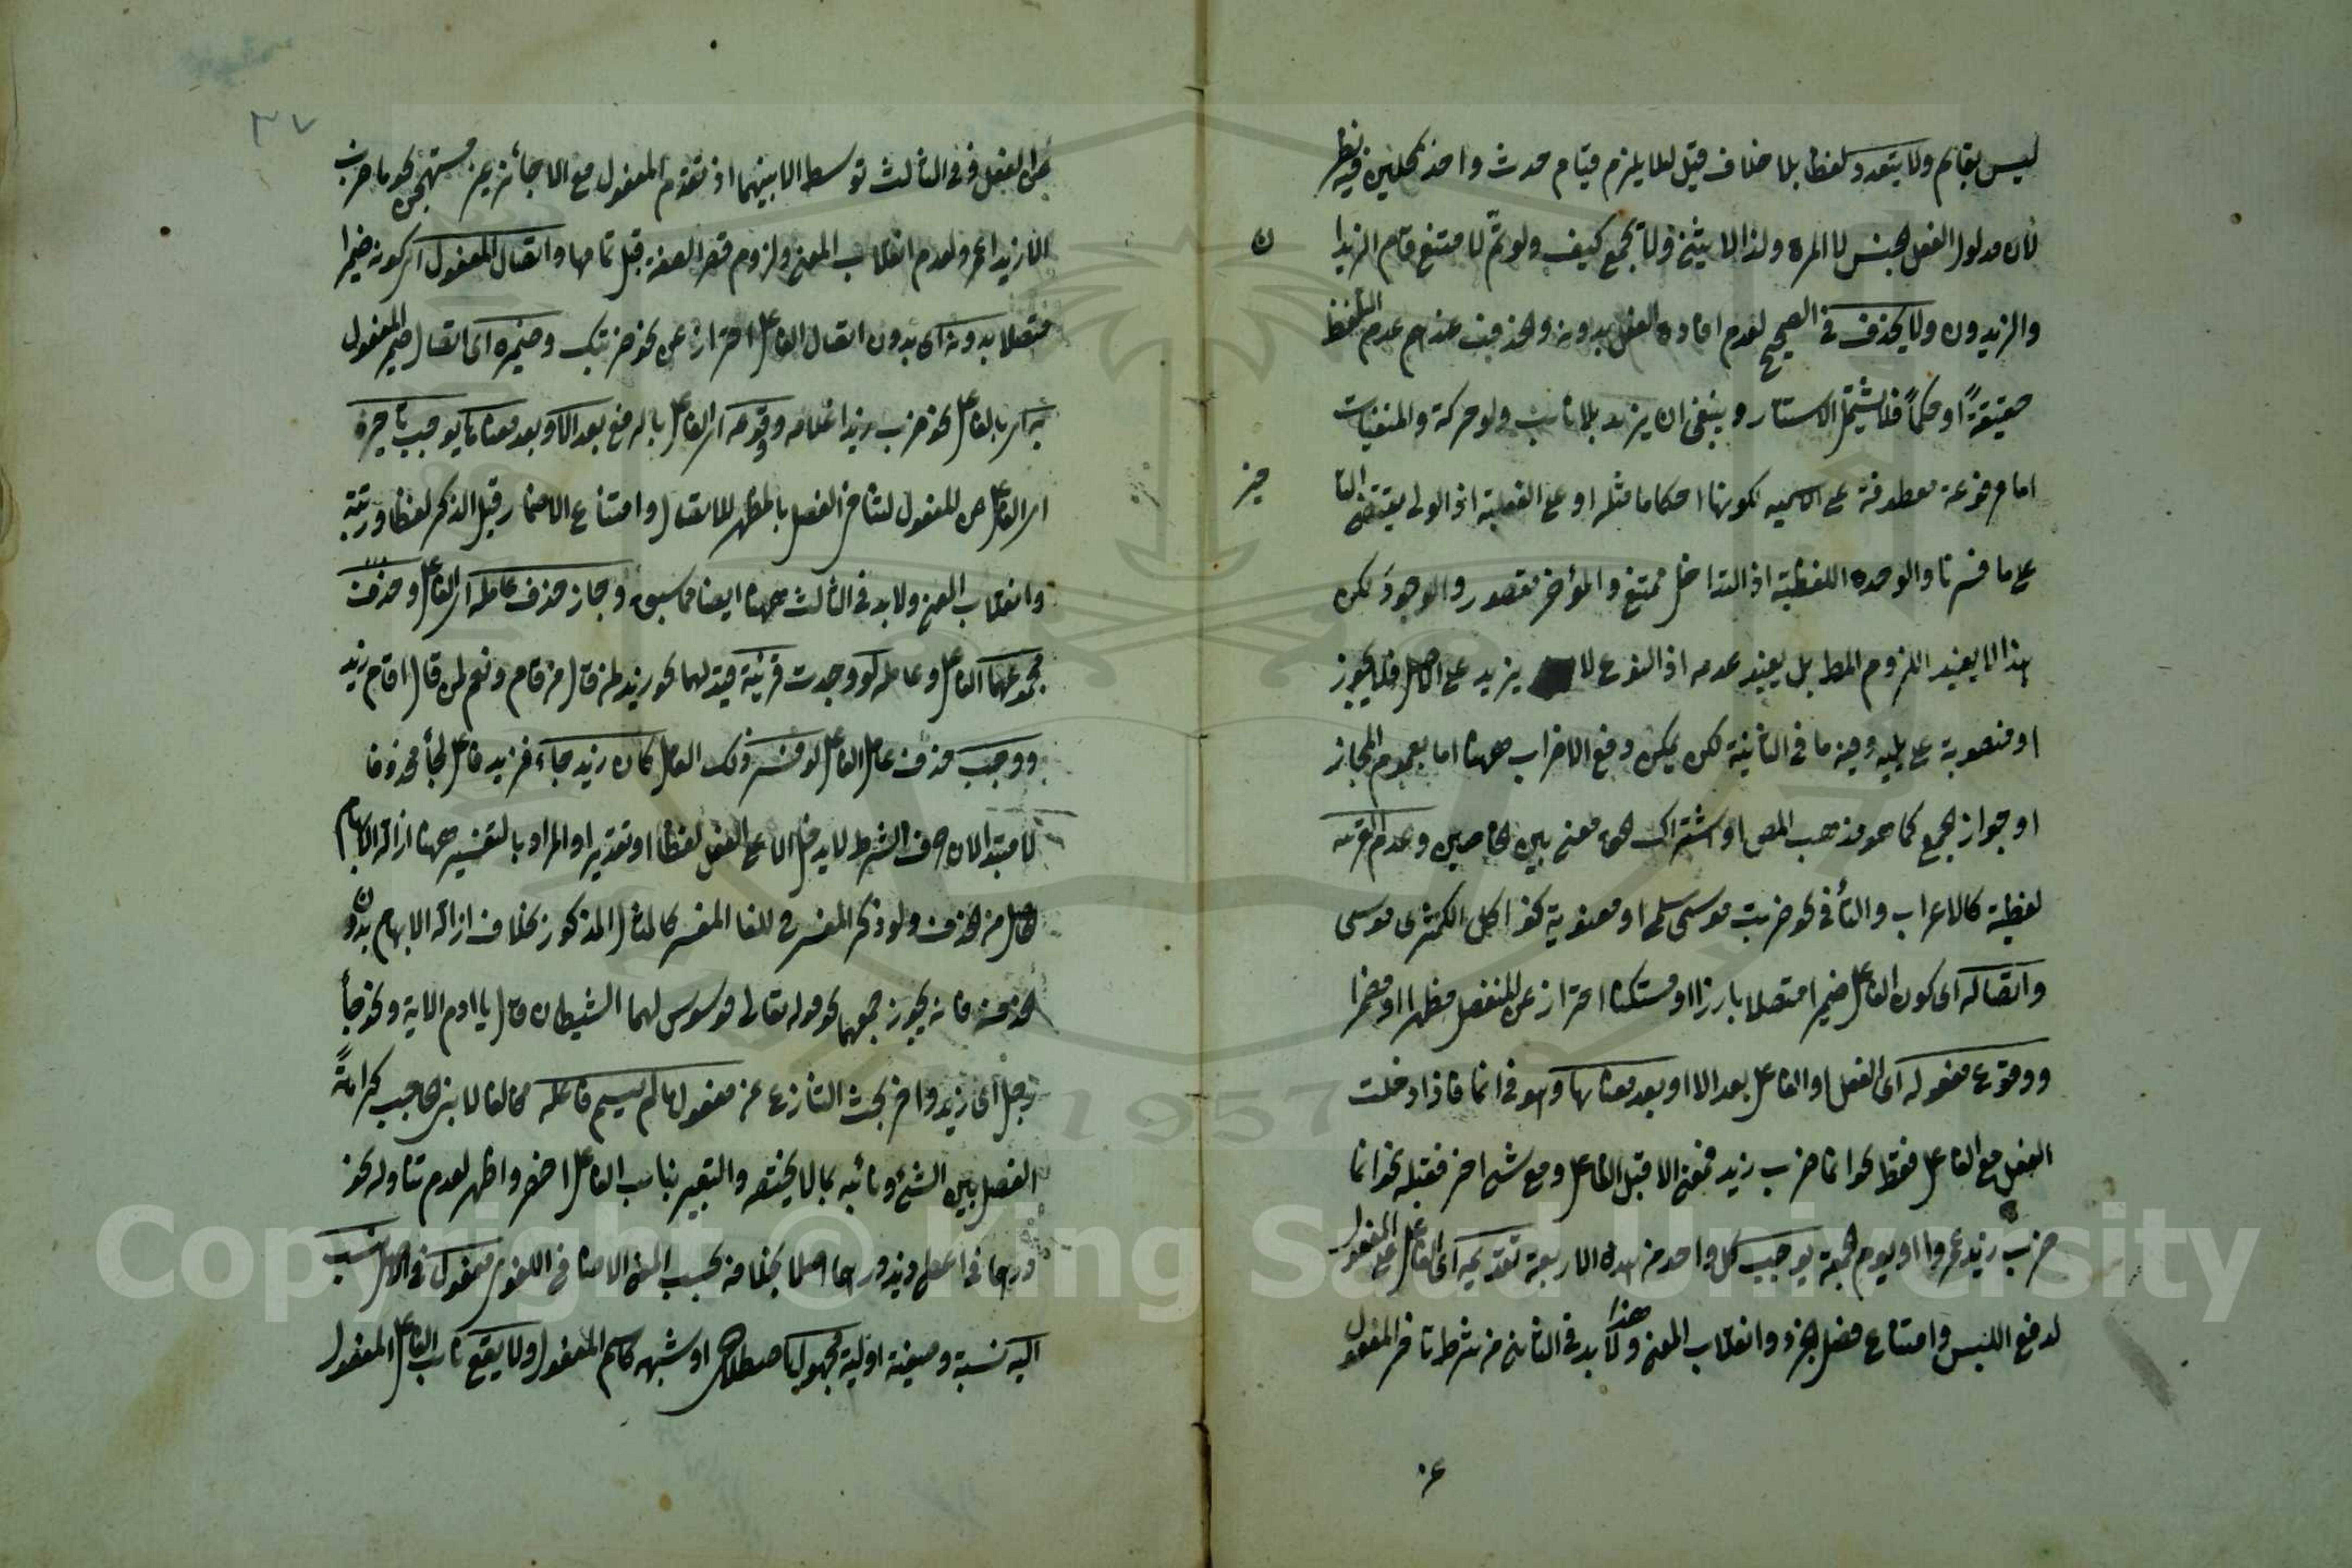 ليس بقايم ولا يتعدد لفظا بلا خلاف قيل لئلا يلزم قيام حدث واحد بمحلين وفيه نظر
لان مدلول الفعل الجنس لا المرة ولذا لا يثنى ولا يجمع كيف ولو تم لامتنع قام الزيدا
ن
والزيدون ولا يحذف في الصحيح لعدم افادة الفعل بدونه والحذف عندهم عدم التلفظ
حقيقةً او حكماً فلا يشمل الاستتار وينبغي ان يزيد بلا نائب ولو حركة والمنفيات
اما مرفوعة معطوفة على الاسمية لكونها احكاما مثله او على الفعلية اذ الولى يقتضى التا
خير
على ما فسرنا والوحدة اللفظية اذ التداخل ممتنع والمؤخر مقصور والوجود لكن
هذا لا يفيد اللزوم المط بل يفيد عدمه اذ الفرع لا يزيد على الاصل فلا يجوز
او منصوبة على يليه وفيه ما في الثانية لكن يمكن دفع الاضراب ههنا اما بعموم المجاز
او جواز الجمع كما هو مذهب المص او اشتراك معنى بين الخاصين وعدم القرينة
لفظية كالاعراب والتأ في نحو ضربت موسى سلمى او معنوية نحو اكل الكمثرى موسى
واتصاله اى كون الفاعل ضميرا متصلا بارزا او مستكنا احترازا عن المنفصل مظهرا او مضمرا
ووقوع مفعوله اى الفعل او الفاعل بعد الا او بعد معناها وهو في انما فاذا دخلت
الفعل مع الفاعل فقط نحو انما ضرب زيد فمعنى الا قبل الفاعل ومع شئ اخر فقبله نحو انما
ضرب زيد عمروا او يوم الجمعة يوجب كل واحد من هذه الاربعة تقديمه اى الفاعل على المفعول
لدفع اللبس وامتناع فصل الجزء وانقلاب المعنى هذا ولا بد في الثانى من شرط تاخر المفعول
عن
٣٧
عن الفعل وفي الثالث توسط الا بينهما اذ تقدم المفعول مع الا جائز غير مستهجن نحو ما ضرب
الا زيدا عمرو لعدم انقلاب المعنى ولزوم قصر الصفة قبل تمامها واتصال المفعول اى كونه ضميرا
متصلا بدونه اى بدون اتصال الفاعل احترازا عن نحو ضربتك وضميره اى اتصال ضمير المفعول
به اى بالفاعل نحو ضرب زيدا غلامه ووقوعه اى الفاعل بالرفع بعد الا او بعد معناها يوجب تأخيره
اى الفاعل عن المفعول لتنافى الفصل بالمظهر للاتصال وامتناع الاضمار قبل الذكر لفظا ورتبة
وانقلاب المعنى ولا بد في الثالث ههنا ايضا مما سبق وجاز حذف عامله اى الفاعل وحذف
مجموعهما الفاعل وعامله لو وجدت قرينة قيد لهما نحو زيد لمن قال من قام ونعم لمن قال اقام زيد
ووجب حذف عامل الفاعل لو فسر ذلك العامل كأن زيد جاء فزيد فاعل لجأ محذوفا
لا مبتدا لان حرف الشرط لا يدخل الا على الفعل لفظا او تقديرا والمراد بالتفسير ههنا ازالة الابهام
الحاصل من الحذف ولو ذكر المفسر لغا المفسر كالمثال المذكور بخلاف ازالة الابهام بدو
ن
الحذف فانه يجوز جمعهما نحو قوله تعالى فوسوس لهما الشيطان قال يا ادم الاية ونحو جأ
رجل اى زيد واخر بحث التنازع عن مفعول ما لم يسم فاعله مخالفا لابن الحاجب كراهةً
الفصل بين الشئ ونائبه بما لا يختصه والتعبير بنائب الفاعل اخصر واظهر لعدم تناوله نحو
درهما في اعطى زيد درهما اصلا بخلافه بحسب المعنى الاضافي اللغوى مفعول في الاصل نسب
اليه نسبة وصيغة اولية مجهول اصطلاحى او شبهه كاسم المفعول ولا يقع نائب الفاعل المفعول